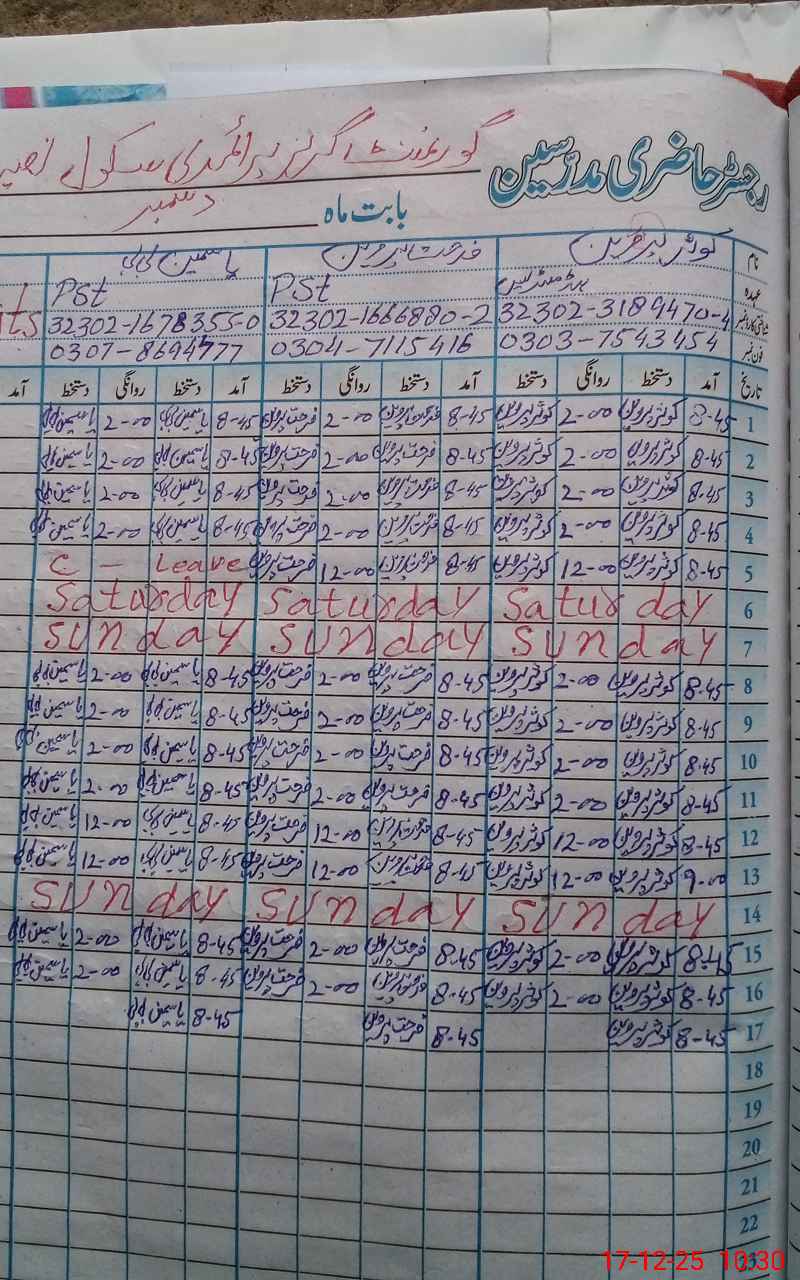 رجسٹر حاضری مدرسین گورنمنٹ گرلز پرائمری سکول نصیر
بابت ماہ دسمبر
نام کوثر پروین فرحت پروین یاسمین بی بی
عہدہ ہیڈ مسٹریس PSt PSt
شناختی کارڈ نمبر 32302-3189470-4 32302-1666880-2 32302-1678355-0 ts
فون نمبر 0303-7543454 0304-7115416 0307-8694777
تاریخ آمد دستخط روانگی دستخط آمد دستخط روانگی دستخط آمد دستخط روانگی دستخط آمد
1 8-45 کوثر پروین 2-00 کوثر پروین 8-45 فرحت پروین 2-00 فرحت پروین 8-45 یاسمین بی بی 2-00 یاسمین بی بی
2 8-45 کوثر پروین 2-00 کوثر پروین 8-45 فرحت پروین 2-00 فرحت پروین 8-45 یاسمین بی بی 2-00 یاسمین بی بی
3 8-45 کوثر پروین 2-00 کوثر پروین 8-45 فرحت پروین 2-00 فرحت پروین 8-45 یاسمین بی بی 2-00 یاسمین بی بی
4 8-45 کوثر پروین 2-00 کوثر پروین 8-45 فرحت پروین 2-00 فرحت پروین 8-45 یاسمین بی بی 2-00 یاسمین بی بی
5 8-45 کوثر پروین 12-00 کوثر پروین 8-45 فرحت پروین 12-00 فرحت پروین C - Leave
6 Saturday Saturday Saturday
7 SUnday SUnday SUnday
8 8-45 کوثر پروین 2-00 کوثر پروین 8-45 فرحت پروین 2-00 فرحت پروین 8-45 یاسمین بی بی 2-00 یاسمین بی بی
9 8-45 کوثر پروین 2-00 کوثر پروین 8-45 فرحت پروین 2-00 فرحت پروین 8-45 یاسمین بی بی 2-00 یاسمین بی بی
10 8-45 کوثر پروین 2-00 کوثر پروین 8-45 فرحت پروین 2-00 فرحت پروین 8-45 یاسمین بی بی 2-00 یاسمین بی بی
11 8-45 کوثر پروین 2-00 کوثر پروین 8-45 فرحت پروین 2-00 فرحت پروین 8-45 یاسمین بی بی 2-00 یاسمین بی بی
12 8-45 کوثر پروین 12-00 کوثر پروین 8-45 فرحت پروین 12-00 فرحت پروین 8-45 یاسمین بی بی 12-00 یاسمین بی بی
13 9-00 کوثر پروین 12-00 کوثر پروین 8-45 فرحت پروین 12-00 فرحت پروین 8-45 یاسمین بی بی 12-00 یاسمین بی بی
14 SUnday SUnday SUnday
15 8-45 کوثر پروین 2-00 کوثر پروین 8-45 فرحت پروین 2-00 فرحت پروین 8-45 یاسمین بی بی 2-00 یاسمین بی بی
16 8-45 کوثر پروین 2-00 کوثر پروین 8-45 فرحت پروین 2-00 فرحت پروین 8-45 یاسمین بی بی 2-00 یاسمین بی بی
17 8-45 کوثر پروین 8-45 فرحت پروین 8-45 یاسمین بی بی
18
19
20
21
22
23
17-12-25 10:30